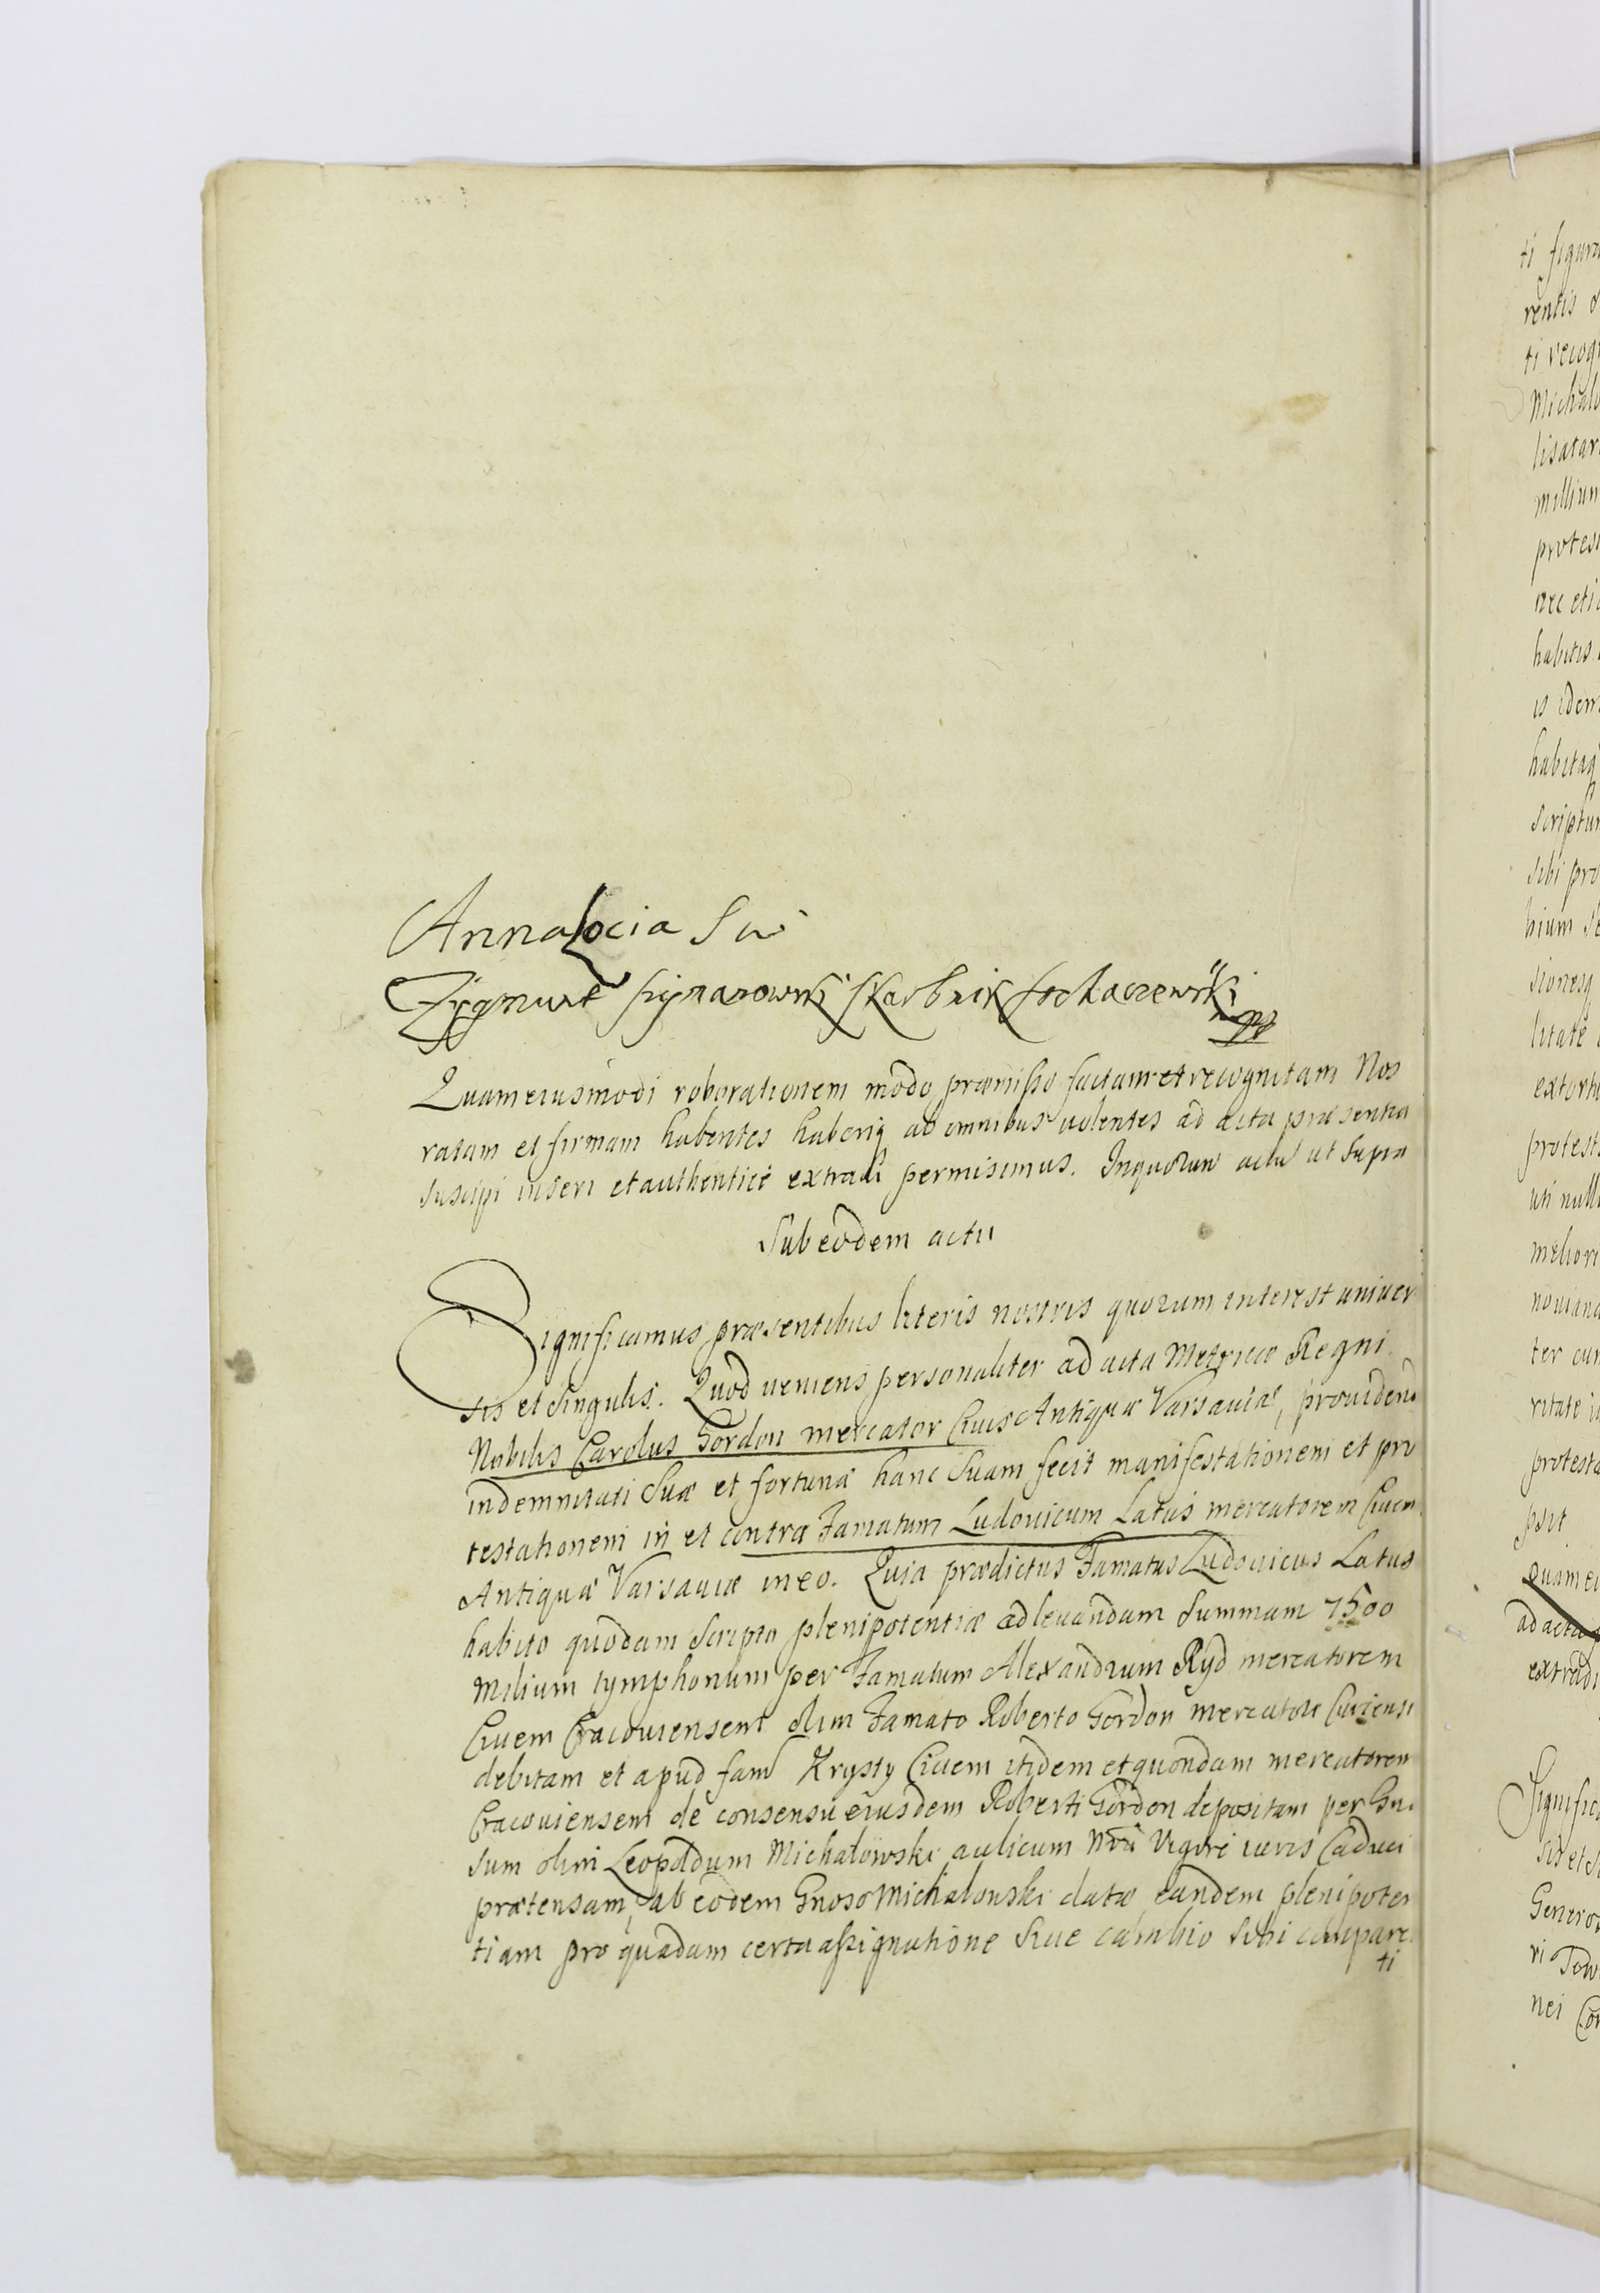 Anna Łocia Sw
Zygmunt Skarbnik Sochaczewski
mp
Quam eiusmodi roborationem modo præmisso factam et recognitam Nos
ratam et firmam habentes haberiq ab omnibus volentes ad acta præsentia
suscipi inseri et authenticè extradi permisimus. In quorum actu ut supra
Sub eodem actu
Significamus præsentibus literis nostris quorum interest univer
sis et singulis. Quod veniens personaliter ad acta Metricæ Regni
Nobilis Carolus Gordon mercator Civis Antiquæ Varsaviæ, providendo
indemnitati suæ et fortunæ hanc suam fecit manifestationem et pro
testationem in et contra Famatum Ludovicum Latus mercatorem Civem
Antiquæ Varsaviæ in eo. Quia prædictus Famatus Ludovicus Latus
habito quodam scripto plenipotentiæ ad levandam summam 7500
milium tymphonum per Famatum Alexandrum Ryd mercatorem
Civem Cracoviensem olim Famato Roberto Gordon mercatori
debitam et apud fam Krysty Civem itidem et quondam mercatorem
Cracoviensem de consensu eiusdem Roberti Gordon depositam per Gn
sum olim Leopoldum Michałowski aulicum Nrū Vigore iuris Caduci
prætensam, ab eodem Gnoso Michałowski datæ eandem plenipoten
tiam pro quadam certa assignatione sive cambio sibi compare
ti
ti figura
rentis
ti recog
Michało
lisatar
millium
protes
nec eti
habitis
is idem
habitaq
scriptu
sibi pro
bium
sionesq
litate
extort
protest
uti null
meliori
noviand
ter cum
ritate i
protesta
psit
Quam ei
ad acta
extradi
Signific
sis et s
Genero
ri Tow
nei Co